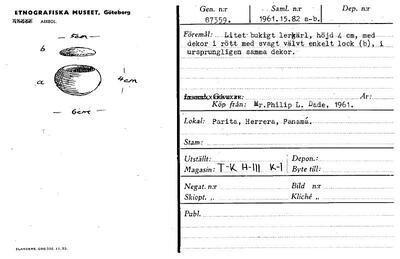 ETNOGRAFISKA MUSEET, Göteborg
AVBEL.
5cm
b
a
4cm
6cm
ELANDERS, GBG
Gen. n:r
87359.
Saml. n:r
1961.15.82 a-b.
Dep. n:r
Föremål: Litet bukigt lerkärl, höjd 4 cm, med
dekor i rött med svagt välvt enkelt lock (b), i
ursprungligen samma dekor.
År:
Köp från: Mr.Philip L. Dade, 1961.
Lokal: Parita, Herrera, Panamá.
Stam:
Utställt: Depon.:
Magasin: T-K H-III K-1 Byte till:
Negat. n:r Bild n:r
Skiopt. „ Kliché „
Publ.